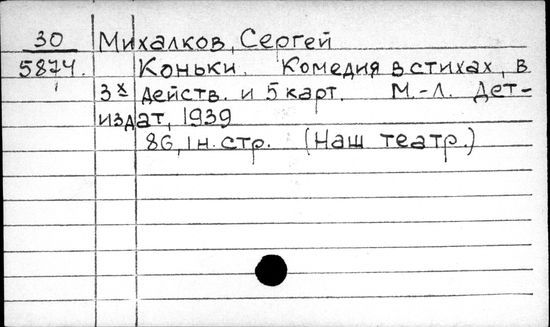 30 Михалков, Сергей
5874. Коньки. Комедия в стихах, в
3х действ. и 5 карт. М.-Л. Дет-
издат, 1939
86, 1 н. стр. (Наш театр.)